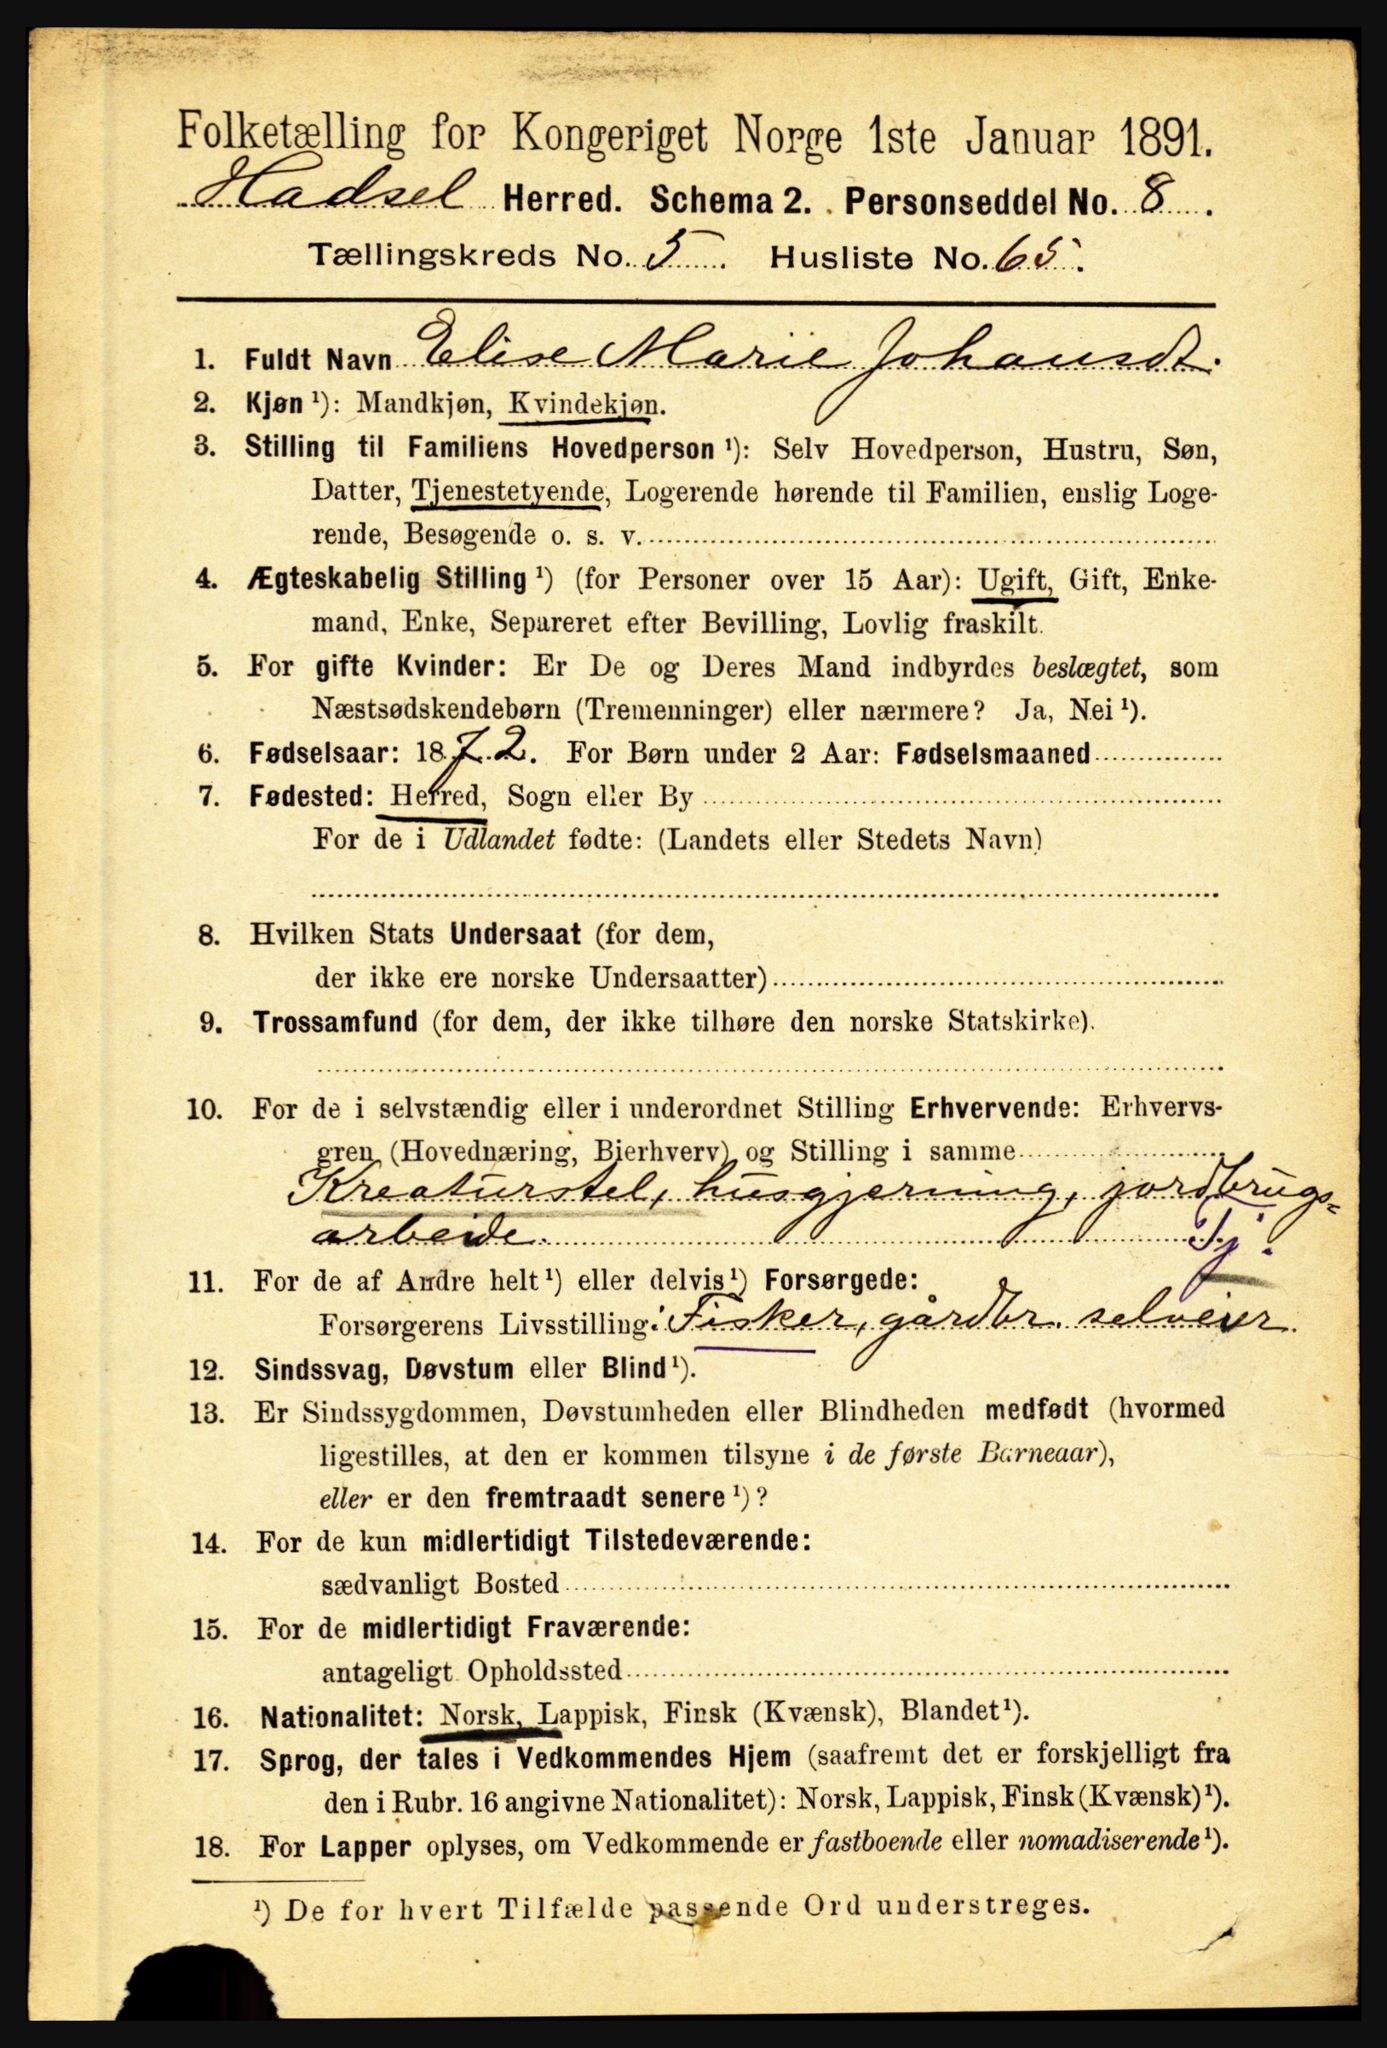 Folketælling for Kongeriget Norge 1ste Januar 1891.
Hadsel Herred. Schema 2. Personseddel No. 8.
Tællingskreds No. 5. Husliste No. 65.
1. Fuldt Navn Elise Marie Johansdt.
2. Kjøn ¹): Mandkjøn, Kvindekjøn.
3. Stilling til Familiens Hovedperson ¹): Selv Hovedperson, Hustru, Søn,
Datter, Tjenestetyende, Logerende hørende til Familien, enslig Loge-
rende, Besøgende o. s. v.
4. Ægteskabelig Stilling ¹) (for Personer over 15 Aar): Ugift, Gift, Enke-
mand, Enke, Separeret efter Bevilling, Lovlig fraskilt.
5. For gifte Kvinder: Er De og Deres Mand indbyrdes beslægtet, som
Næstsødskendebørn (Tremenninger) eller nærmere? Ja, Nei ¹).
6. Fødselsaar: 1872. For Børn under 2 Aar: Fødselsmaaned
7. Fødested: Herred, Sogn eller By
For de i Udlandet fødte: (Landets eller Stedets Navn)
8. Hvilken Stats Undersaat (for dem,
der ikke ere norske Undersaatter)
9. Trossamfund (for dem, der ikke tilhøre den norske Statskirke).
10. For de i selvstændig eller i underordnet Stilling Erhvervende: Erhvervs-
gren (Hovednæring, Bierhverv) og Stilling i samme
Kreaturstel, husgjerning, jordbrugs-
arbeide. Tj.
11. For de af Andre helt ¹) eller delvis ¹) Forsørgede:
Forsørgerens Livsstilling: Fisker, gårdbr. selveier.
12. Sindssvag, Døvstum eller Blind ¹).
13. Er Sindssygdommen, Døvstumheden eller Blindheden medfødt (hvormed
ligestilles, at den er kommen tilsyne i de første Barneaar),
eller er den fremtraadt senere ¹)?
14. For de kun midlertidigt Tilstedeværende:
sædvanligt Bosted
15. For de midlertidigt Fraværende:
antageligt Opholdssted
16. Nationalitet: Norsk, Lappisk, Finsk (Kvænsk), Blandet ¹).
17. Sprog, der tales i Vedkommendes Hjem (saafremt det er forskjelligt fra
den i Rubr. 16 angivne Nationalitet): Norsk, Lappisk, Finsk (Kvænsk) ¹).
18. For Lapper oplyses, om Vedkommende er fastboende eller nomadiserende ¹).
¹) De for hvert Tilfælde passende Ord understreges.